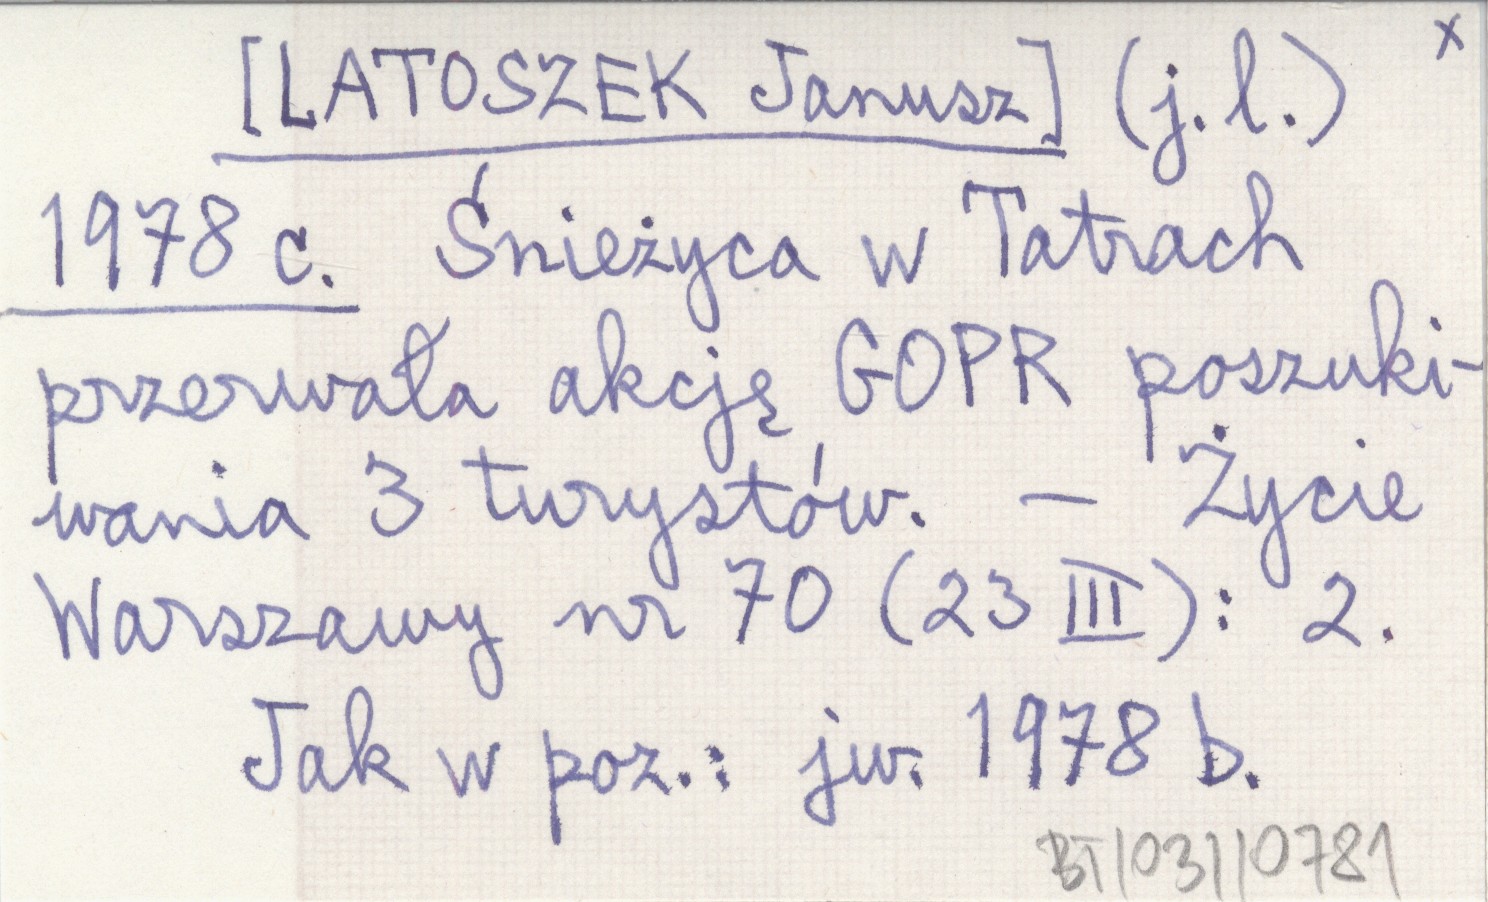 x
[LATOSZEK Janusz] (j. l.)
1978 c. Śnieżyca w Tatrach
przerwała akcję GOPR poszuki-
wania 3 turystów. — Życie
Warszawy nr 70 (23 III): 2.
Jak w poz.: jw. 1978 b.
BT/031/0781